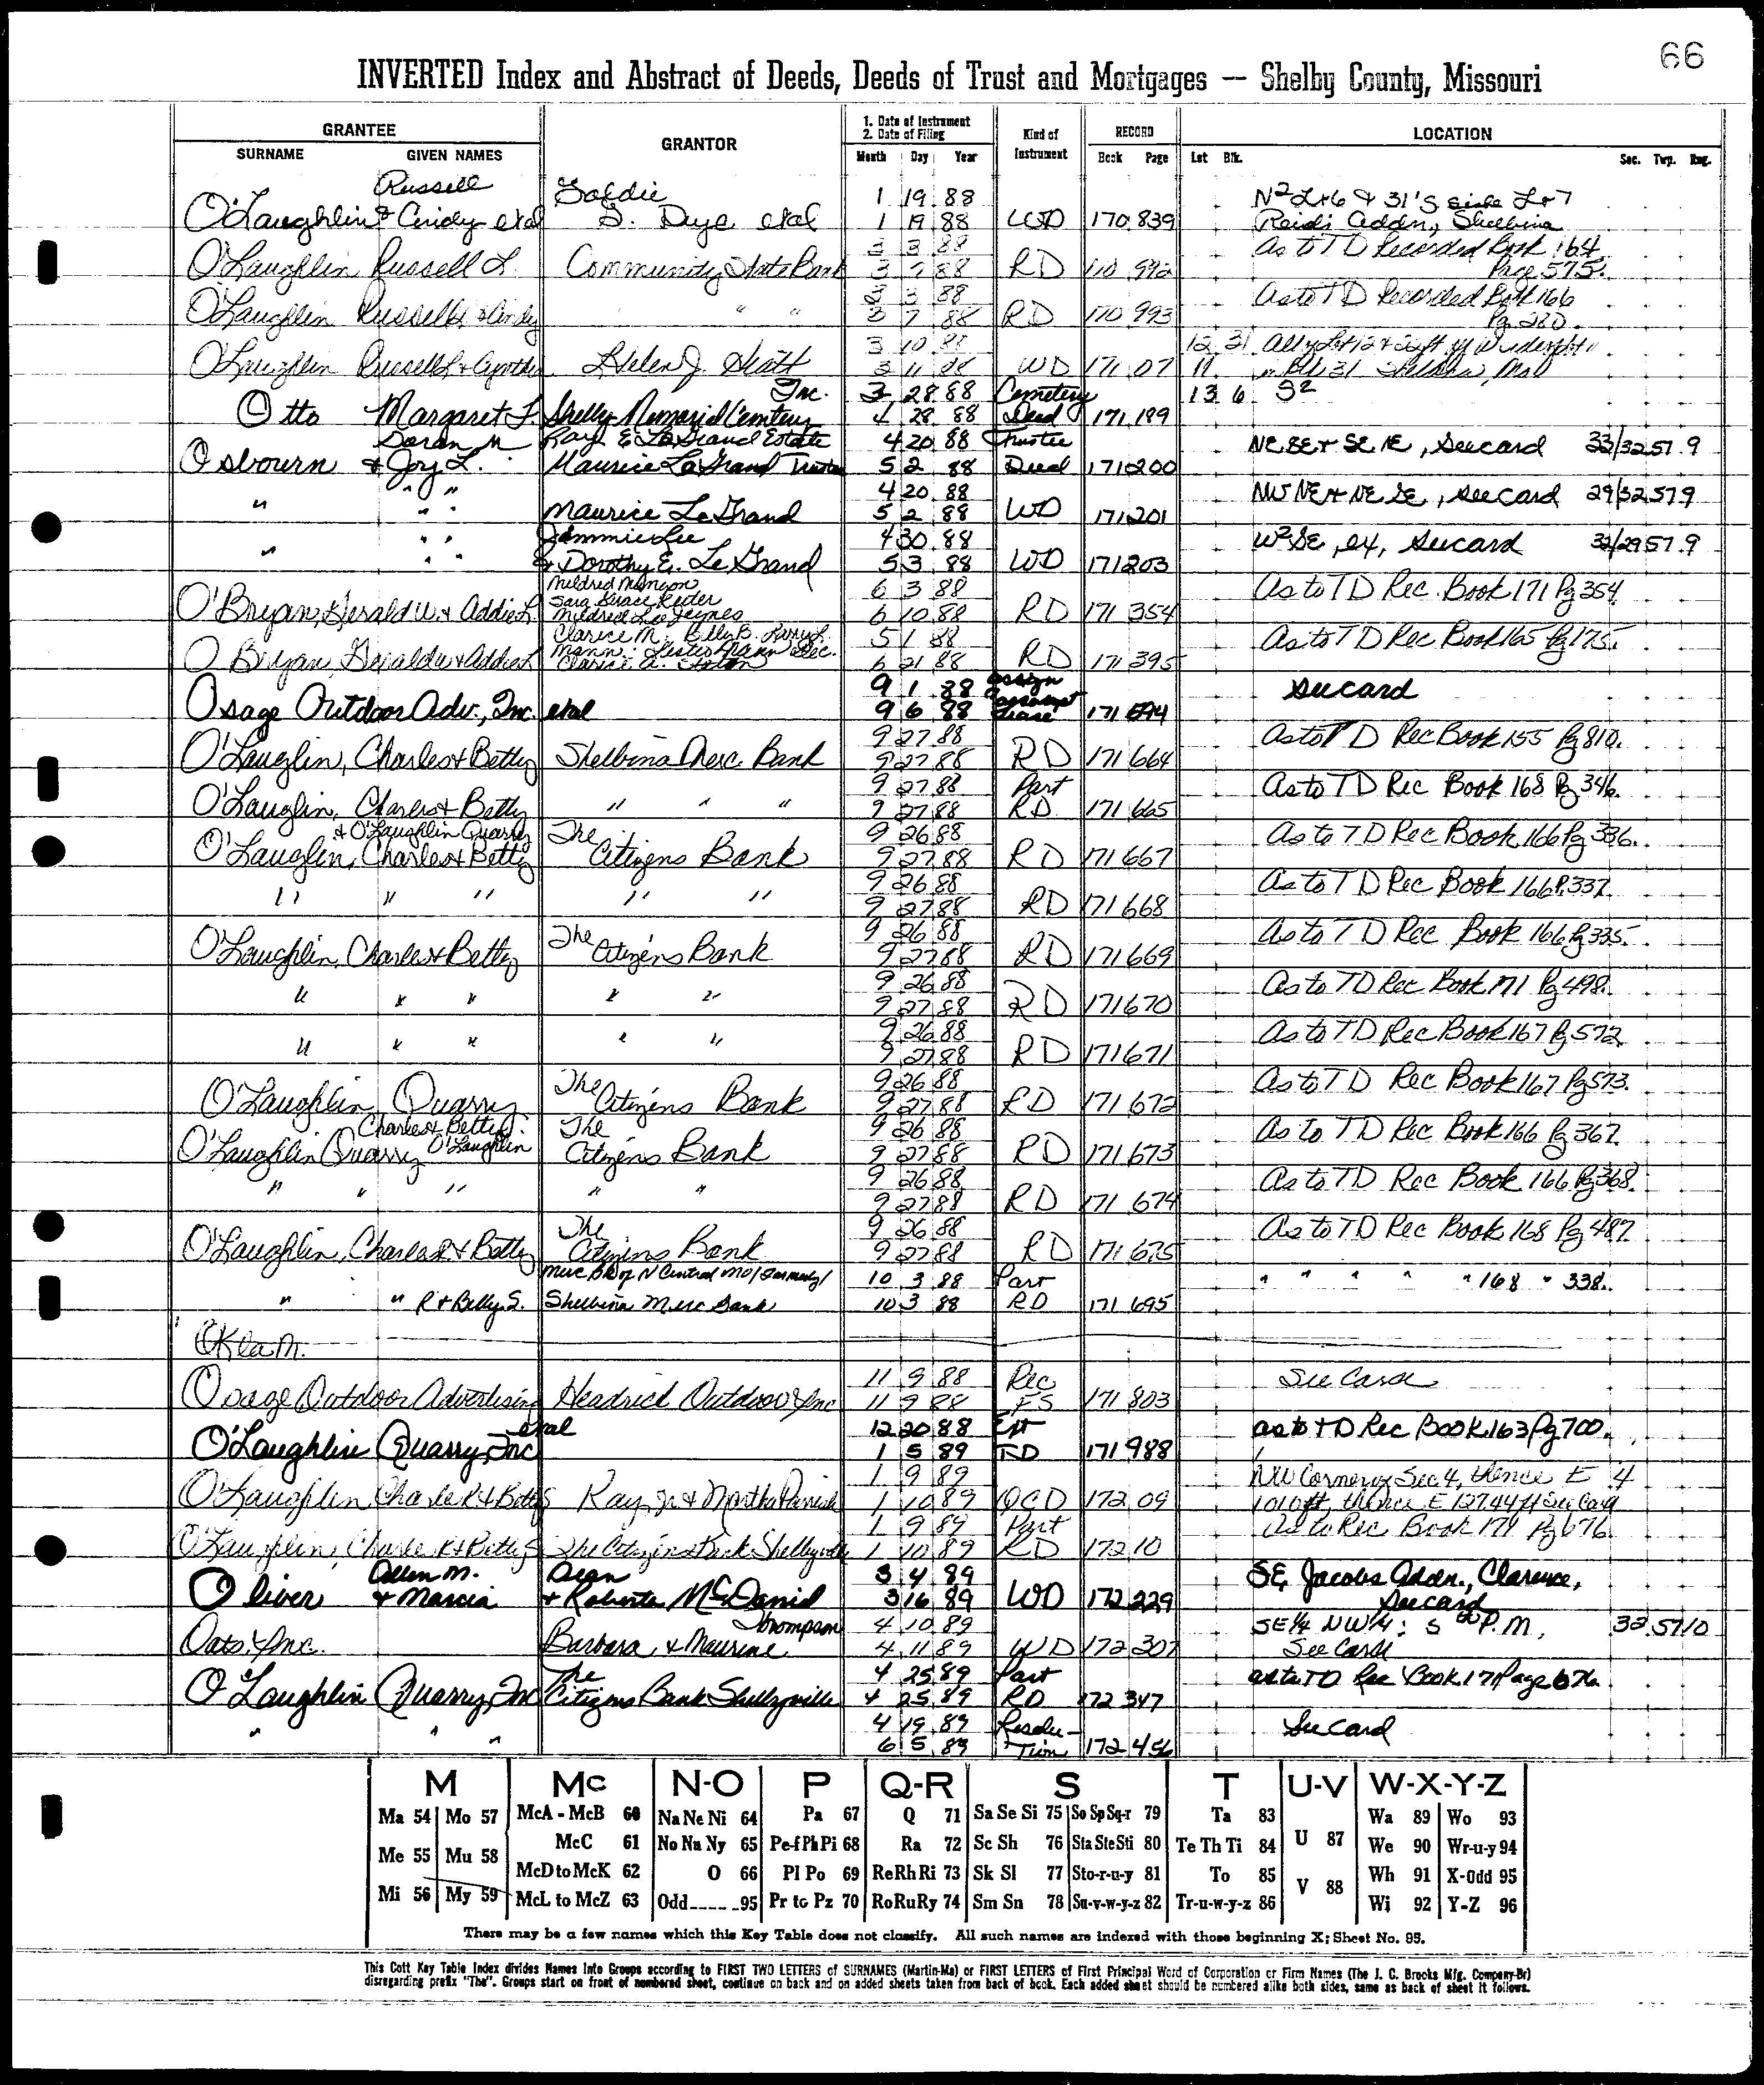 66
INVERTED Index and Abstract of Deeds, Deeds of Trust and Mortgages — Shelby County, Missouri
GRANTEE GRANTOR 1. Date of Instrument 2. Date of Filing Kind of Instrument RECORD LOCATION
SURNAME GIVEN NAMES Month Day Year Book Page Lot Blk. Sec. Twp. Rng.
Russell Goldie 1 19 88 N2 Lt 6 & 31's side Lt 7
O'Laughlin & Cindy etal S. Dye etal 1 19 88 WD 170 839 Reids Addn, Shelbina
3 3 88 As to TD Recorded Book 164
O'Laughlin Russell L. Community State Bank 3 7 88 RD 170 992 Page 575.
3 3 88 As to TD Recorded Book 166
O'Laughlin Russell L & Cindy " " 3 7 88 RD 170 993 Pg 280.
3 10 88 12 31
O'Laughlin Russell L & Cynthia Helen J. Hiatt 3 11 88 WD 171 07 11
Inc. 3 28 88 Cemetery 13 6 S2
Otto Margaret F. Shelby Memorial Cemetery 4 28 88 Deed 171 189
Doran M Ray E LeGrand Estate 4 20 88 Trustee NE SE & SE NE, See card 33/32 57 9
Osbourn & Joy L. Maurice LeGrand Trustee 5 2 88 Deed 171 200
" " 4 20 88 NW NE & NE SE, See card 29/32 57 9
" " " Maurice LeGrand 5 2 88 WD 171 201
" " Jimmie Lee 4 30 88 W2 SE, ex, See card 32/29 57 9
" " " & Dorothy E. LeGrand 5 3 88 WD 171 203
Mildred Manyon 6 3 88 As to TD Rec. Book 171 Pg 354.
O'Bryan, Gerald W. & Addie L. Sara Grace Reiter 6 10 88 RD 171 354
Mildred Lee Jeynes
Clarice M. Billy B. Larry L. 5 1 88 As to TD Rec Book 165 Pg 175.
O'Bryan, Gerald W & Addie L Mann: Lester Mann Dec. 6 21 88 RD 171 395
9 1 88 Assign See card
Osage Outdoor Adv., Inc. etal 9 6 88 Lease 171 594
9 27 88 As to TD Rec Book 155 Pg 810.
O'Lauglin, Charles & Betty Shelbina Merc. Bank 9 27 88 RD 171 664
9 27 88 Part As to TD Rec Book 168 Pg 346.
O'Lauglin, Charles & Betty " " " 9 27 88 RD 171 665
& O'Laughlin Quarry The 9 26 88 As to TD Rec Book 166 Pg 336.
O'Lauglin, Charles & Betty Citizens Bank 9 27 88 RD 171 667
9 26 88 As to TD Rec Book 166 P. 337.
" " " " " 9 27 88 RD 171 668
The 9 26 88 As to TD Rec Book 166 Pg 335.
O'Laughlin, Charles & Betty Citizens Bank 9 27 88 RD 171 669
9 26 88 As to TD Rec Book 171 Pg 498.
" " " " " 9 27 88 RD 171 670
9 26 88 As to TD Rec Book 167 Pg 572.
" " " " " 9 27 88 RD 171 671
The 9 26 88 As to TD Rec Book 167 Pg 573.
O'Laughlin Quarry Citizens Bank 9 27 88 RD 171 672
Charles & Betty The 9 26 88 As to TD Rec Book 166 Pg 367.
O'Laughlin Quarry O'Laughlin Citizens Bank 9 27 88 RD 171 673
9 26 88 As to TD Rec Book 166 Pg 368.
" " " " " 9 27 88 RD 171 674
The 9 26 88 As to TD Rec Book 168 Pg 487.
O'Laughlin, Charles R. & Betty Citizens Bank 9 27 88 RD 171 675
Merc Bk of N Central Mo/formerly/ 10 3 88 Part " " " " " 168 " 338.
" " R & Betty S. Shelbina Merc Bank 10 3 88 RD 171 695
Okla M.
11 9 88 Rec See Card
Osage Outdoor Advertising Headrick Outdoor, Inc 11 9 88 FS 171 803
etal 12 20 88 Ext as to TD Rec Book 163 Pg 700.
O'Laughlin Quarry, Inc 1 5 89 TD 171 988
1 9 89 NW Corner of Sec 4, thence E 4
O'Laughlin Charles R & Betty S Ray, Jr. & Martha Parrish 1 10 89 QCD 172 09 1010ft, thence E 127.44 ft See Card
1 9 89 Part As to Rec Book 171 Pg 676
O'Laughlin, Charles R & Betty S The Citizens Bank Shelbyville 1 10 89 RD 172 10
Allen M. Dean 3 4 89 SE, Jacobs Addn., Clarence,
Oliver & Marcia & Roberta McDanid 3 16 89 WD 172 229 See card
Thompson 4 10 89 SE¼ NW¼; 5th P.M., 32 57 10
Oats, Inc. Barbara & Maurine 4 11 89 WD 172 307 See Card
The 4 25 89 Part as to TD Rec Book 171 Page 676.
O'Laughlin Quarry, Inc Citizens Bank Shelbyville 4 25 89 RD 172 347
4 19 89 Resolu- See Card
" " " 6 5 89 tion 172 456
M Mc N-O P Q-R S T U-V W-X-Y-Z
Ma 54 Mo 57 McA - McB 60 Na Ne Ni 64 Pa 67 Q 71 Sa Se Si 75 So Sp Sq-r 79 Ta 83 U 87 Wa 89 Wo 93
Me 55 Mu 58 McC 61 No Nu Ny 65 Pe-f Ph Pi 68 Ra 72 Sc Sh 76 Sta Ste Sti 80 Te Th Ti 84 We 90 Wr-u-y 94
McD to McK 62 O 66 Pl Po 69 Re Rh Ri 73 Sk Sl 77 Sto-r-u-y 81 To 85 V 88 Wh 91 X-Odd 95
Mi 56 My 59 McL to McZ 63 Odd 95 Pr to Pz 70 Ro Ru Ry 74 Sm Sn 78 Su-v-w-y-z 82 Tr-u-w-y-z 86 Wi 92 Y-Z 96
There may be a few names which this Key Table does not classify. All such names are indexed with those beginning X; Sheet No. 95.
This Cott Key Table Index divides Names Into Groups according to FIRST TWO LETTERS of SURNAMES (Martin-Ma) or FIRST LETTERS of First Principal Word of Corporation or Firm Names (The J. C. Brooks Mfg. Company-Br)
disregarding prefix "The". Groups start on front of numbered sheet, continue on back and on added sheets taken from back of book. Each added sheet should be numbered alike both sides, same as back of sheet it follows.